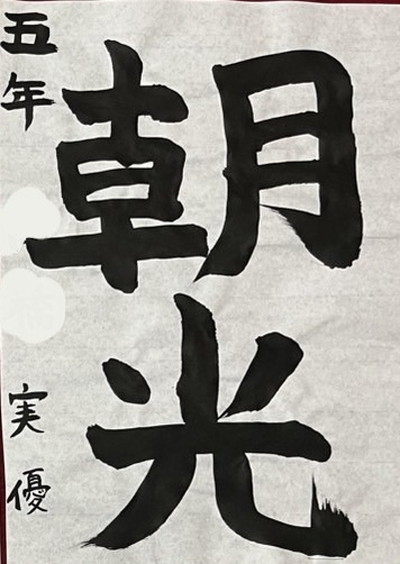 朝光
五年 実優